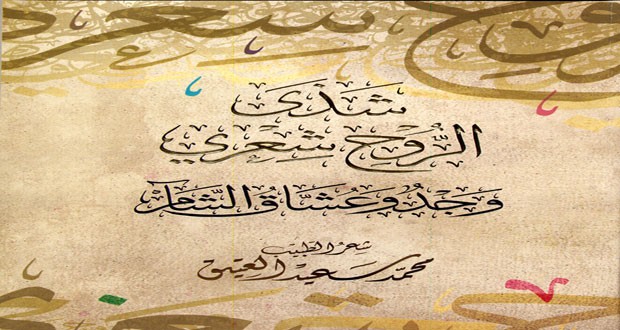 شَذَى
الرُّوحِ شِعْرِي
وَجْدٌ وَعُشَّاقُ الشَّام
شعر الطبيب
محمد سعيد العتيق